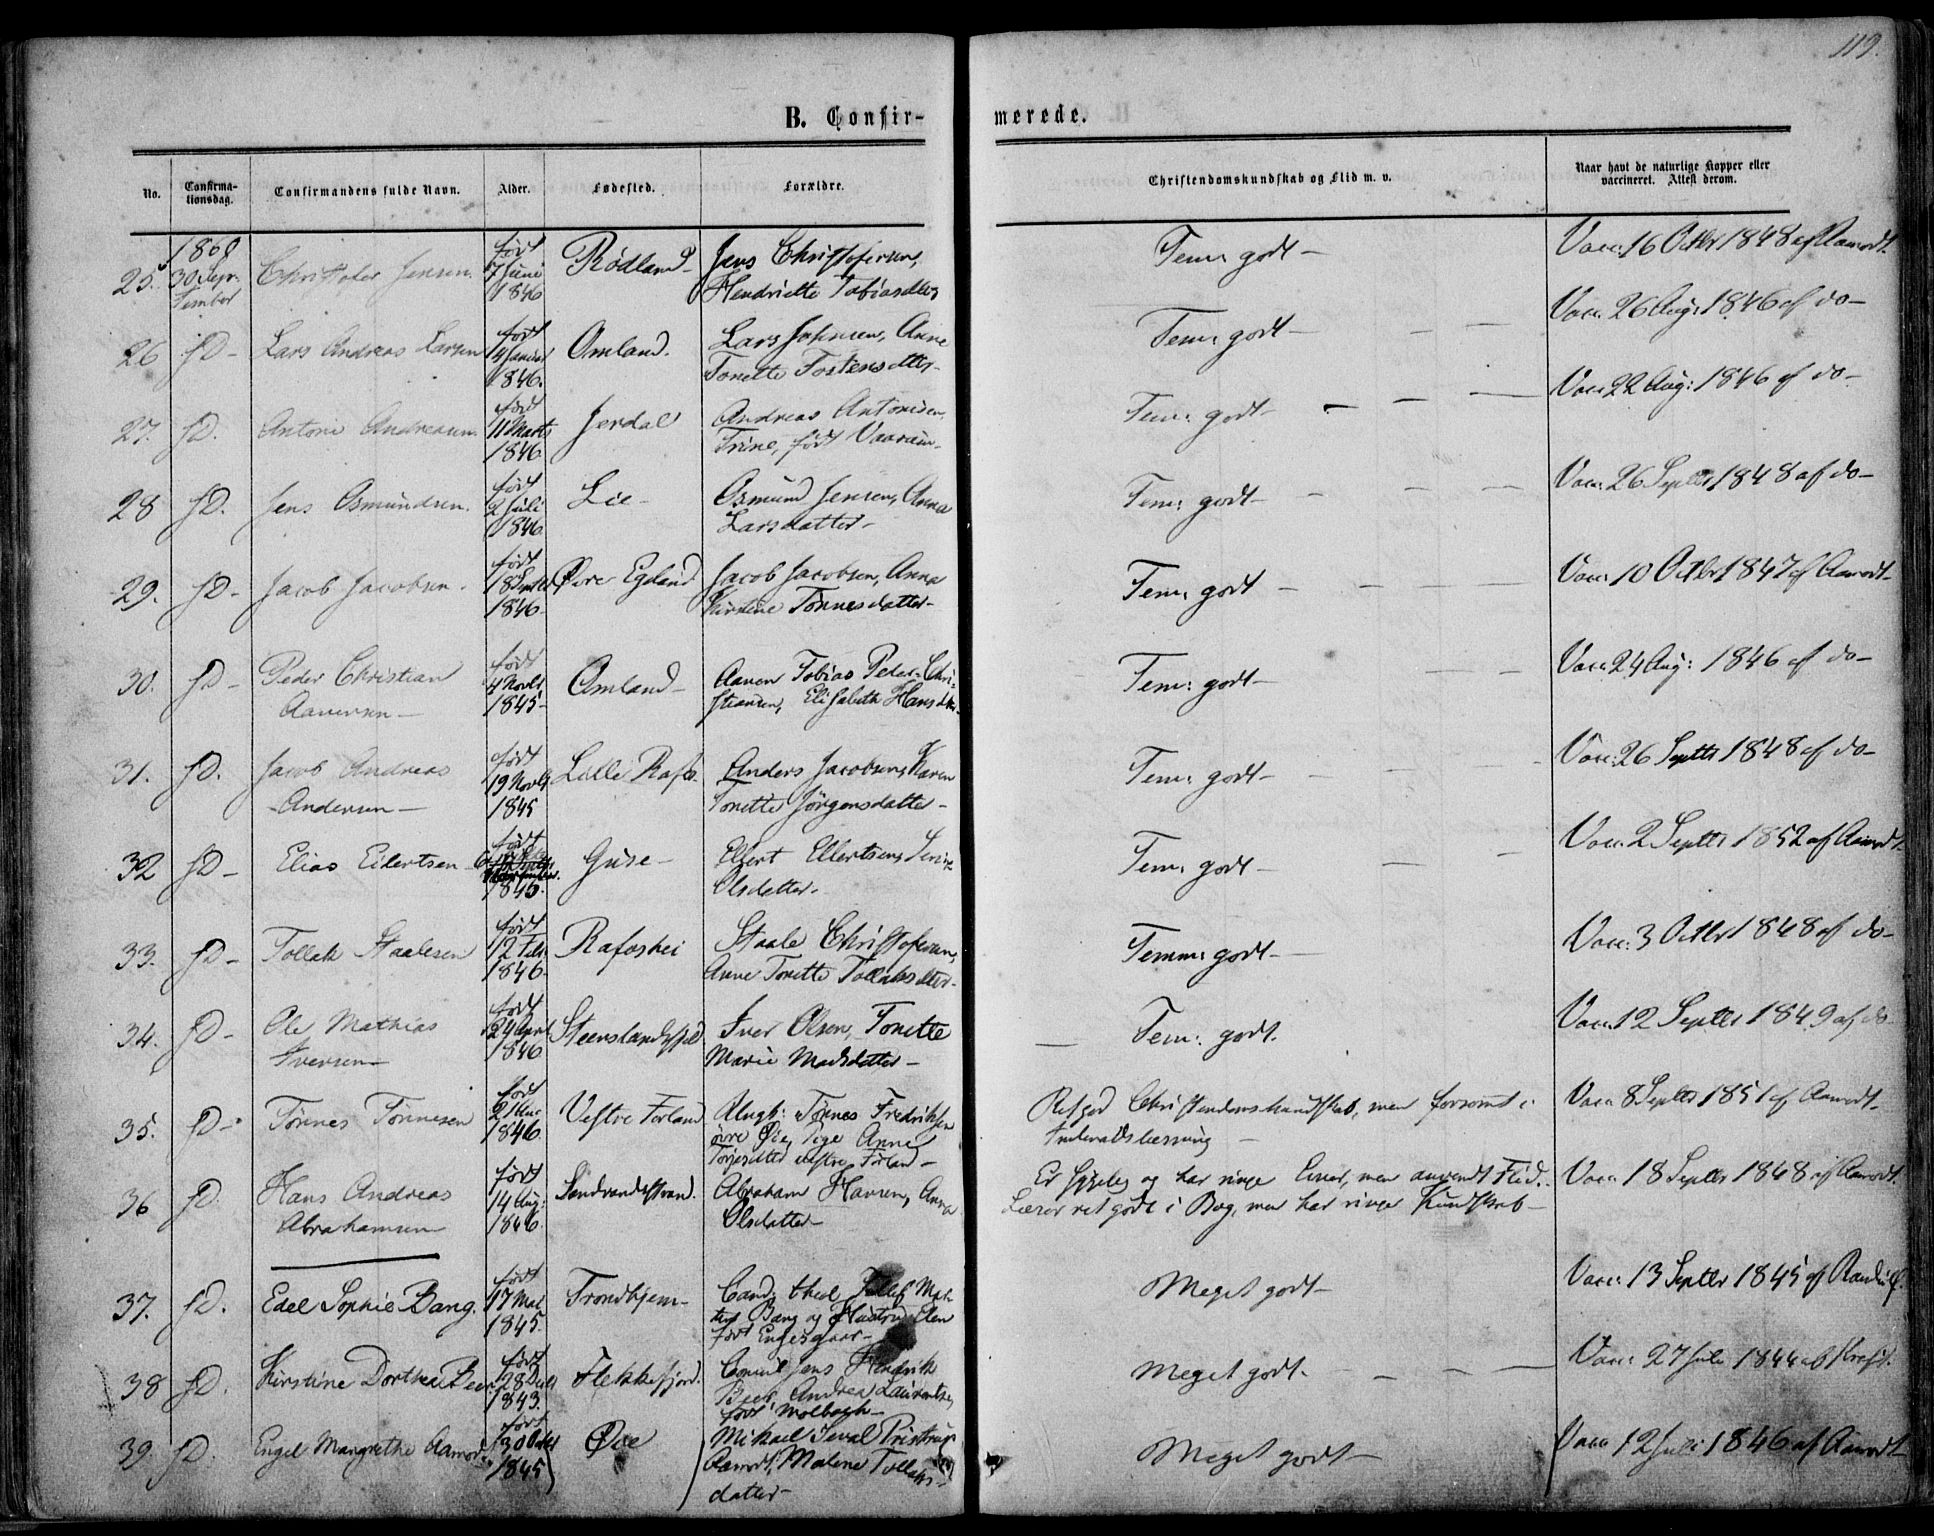 119.
B. Confir-
merede.
No.
Confirma-
tionsdag.
Confirmandens fulde Navn.
Alder.
Fødested.
Forældre.
Christendomskundskab og Flid m. v.
Naar havt de naturlige Kopper eller
vaccineret. Attest derom.
1860
25. 30 Sep-
tember
Christofer Jensen.
født
7 Juni
1846
Rödland-
Jens Christofersen,
Henriette Tobiasdtter
Tem: godt -
Vacc: 16 Octbr 1848 af Aamodt.
26 D- Lars Andreas Larsen
født
14 Januar
1846.
Omland.
Lars Johnsen, Anne
Tonette Tostensdtter-
Tem: godt -
Vacc. 26 Aug: 1846 af do-
27. D. Antoni Andreasen.
født
11 Marts
1846
Jerdal
Andreas Antonisen,
Trine, født
Tem: godt-
Vacc. 22 Aug: 1846 af do-
28 D. Jens Osmundsen.
født
2 Juli
1846
Lie-
Osmund Jensen, Anna
Larsdatter-
Tem: godt-
Vacc: 26 Septbr 1848 af do-
29. D- Jacob Jacobsen.
født
18 Septbr
1846-
Øvre Egeland
Jacob Jacobsen, Anna
Kirstine Tönnesdatter-
Tem: godt -
Vacc: 10 Octbr 1847 af Aamodt-
30. D- Peder Christian
Aanensen -
født
4 Novbr
1845-
Omland-
Aanen Tobias Peder Chri-
stiansen, Elisabeth Hansdtter-
Tem: godt-
Vacc. 24 Aug: 1846 af do-
31. D. Jacob Andreas
-Andersen-
født
19 Novbr
1845
Lille Rafos.
Anders Jacobsen, Karen
Tonette Jörgensdatter-
Tem: godt-
Vacc: 26 Septbr 1848 af do-
32 D- Elias Eilertsen
født
1845.
Guse-
Eilert Eilertsen,
Olsdatter.
Tem: godt
Vacc: 2 Septbr 1852 af Aamodt
33. D- Tollak Staalesen
født
12 Febr
1846-
Rafoshei
Staale Christofersen,
Anne Tonette Tollaksdtter-
Temm: godt-
Vacc: 3 Octbr 1848 af do-
34. D- Ole Mathias
Iversen-
født
24 April
1846
Steenslandsfjeld
Iver Olsen, Tonette
Marie Madsdatter-
Tem: godt.
Vacc. 12 Septbr 1849 af do
35. D- Tönnes Tönnesen
født
1846.
Vestre Forland
Ungk: Tönnes Fredriksen
övre Øie, Pige Anne
Torjesdtter vestre Forland-
Ret god Christendomskundskab, men forsømt i
Indenadslæsning -
Vacc. 8 Septbr 1851 af Aamodt-
36 D. Hans Andreas
Abrahamsen
født
14 Aug:
1846.
Sandvandsstrand.
Abraham Hansen, Anna
Olsdatter-
Er og har ringe Evner, men anvendt Flid.
Læser ret godt i Bog, men har ringe Kundskab-
Vacc: 18 Septbr 1848 af Aamodt.
37. D. Edel Sophie Bang.
født
17 Mai
1845.
Trondhjem-
Cand: theol
Bang og Hustru Elen
født Engesgaar-
Meget godt-
Vacc: 13 Septbr 1845 af
38 D. Kirstine Dorthea Beer
født
28 Decb
1843.
Flekkefjord.
Consul Jens Hendrik
Beer, Andrea Laurentse
født Molbach-
Meget godt.
Vacc: 27 Juli 1844 af Kraft.
39. D. Engel Margrethe Aamodt
født
30 Octbr
1845
Øie
Mikael Seval Pristrup
Aamodt, Malene Tollaks-
datter-
Meget godt-
Vacc 12 Juli 1846 af Aamodt